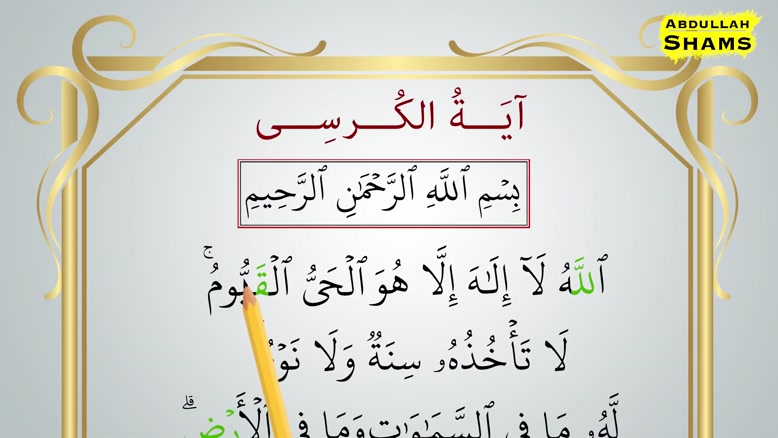 ABDULLAH
SHAMS
آيَـــةُ الكُـــرسِـــى
بِسْمِ ٱللَّهِ ٱلرَّحْمَٰنِ ٱلرَّحِيمِ
ٱللَّهُ لَآ إِلَٰهَ إِلَّا هُوَ ٱلْحَىُّ ٱلْقَيُّومُ ۚ
لَا تَأْخُذُهُۥ سِنَةٌ وَلَا
لَّهُۥ مَا فِى ٱلسَّمَٰوَٰتِ وَمَا فِى ٱلْأَرْضِ ۗ